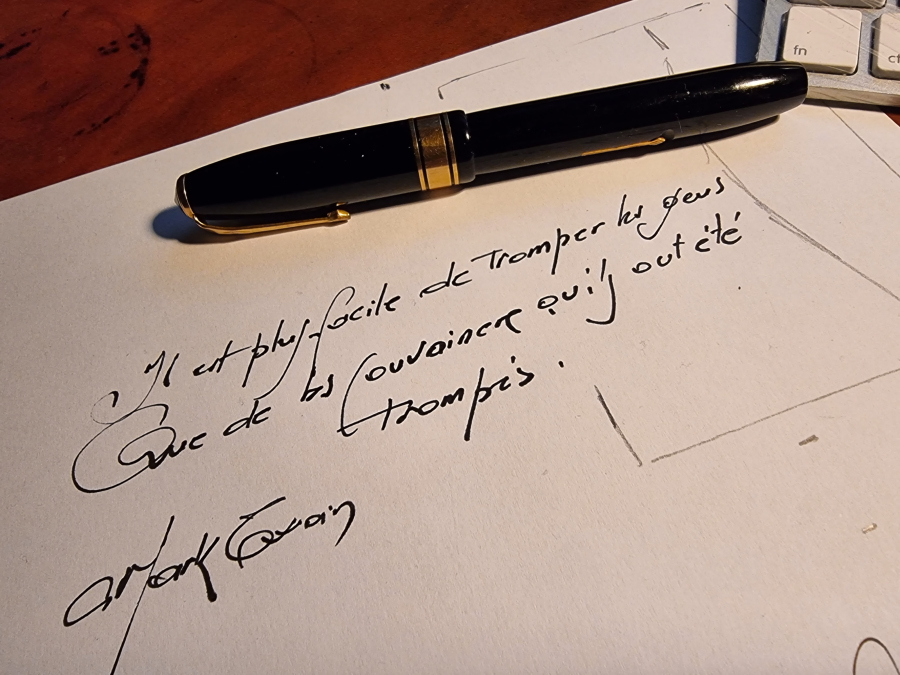 Il est plus facile de tromper les gens
Que de les convaincre qu'ils ont été
trompés.
Mark Twain
fn